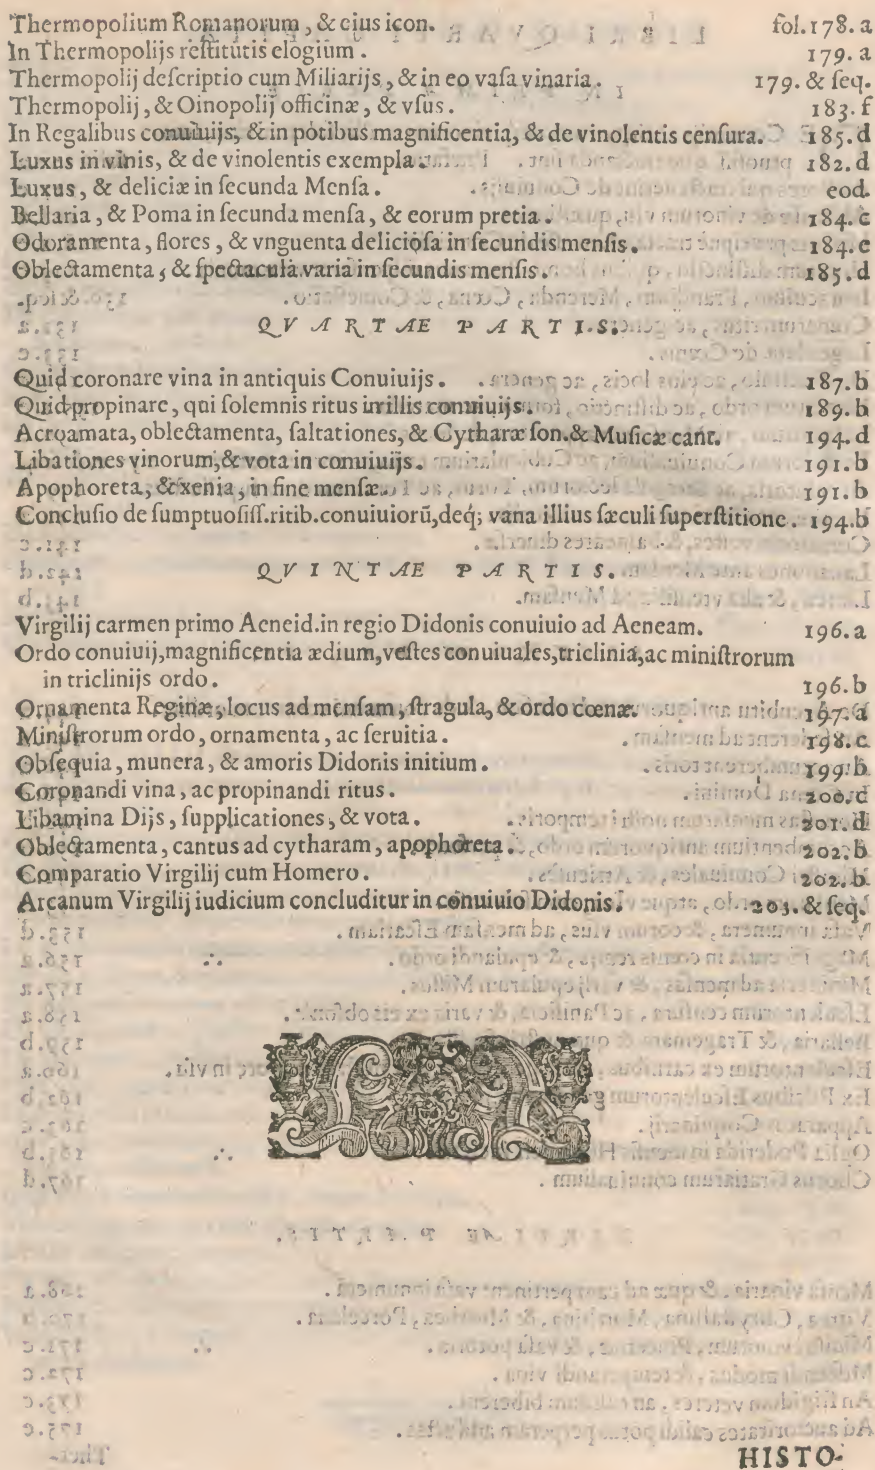 Thermopolium Romanorum, & eius icon. fol. 178. a
In Thermopolijs reſtitutis elogium. 179. a
Thermopolij deſcriptio cum Miliarijs, & in eo vaſa vinaria. 179. & ſeq.
Thermopolij, & Oinopolij officinæ, & vſus. 183. f
In Regalibus conuiuijs, & in potibus magnificentia, & de vinolentis cenſura. 185. d
Luxus in vinis, & de vinolentis exempla. 182. d
Luxus, & deliciæ in ſecunda Menſa. eod.
Bellaria, & Poma in ſecunda menſa, & eorum pretia. 184. c
Odoramenta, flores, & vnguenta delicioſa in ſecundis menſis. 184. e
Oblectamenta, & ſpectacula varia in ſecundis menſis. 185. d
QVARTAE PARTIS.
Quid coronare vina in antiquis Conuiuijs. 187. b
Quid propinare, qui ſolemnis ritus in illis conuiuijs. 189. b
Acroamata, oblectamenta, ſaltationes, & Cytharæ ſon. & Muſicæ cant. 194. d
Libationes vinorum, & vota in conuiuijs. 191. b
Apophoreta, & xenia, in fine menſæ. 191. b
Concluſio de ſumptuoſiſſ. ritib. conuiuiorũ, deq; vana illius ſæculi ſuperſtitione. 194. b
QVINTAE PARTIS.
Virgilij carmen primo Aeneid. in regio Didonis conuiuio ad Aeneam. 196. a
Ordo conuiuij, magnificentia ædium, veſtes conuiuales, triclinia, ac miniſtrorum
in triclinijs ordo. 196. b
Ornamenta Reginæ, locus ad menſam, ſtragula, & ordo cœnæ. 197. a
Miniſtrorum ordo, ornamenta, ac ſeruitia. 198. c
Obſequia, munera, & amoris Didonis initium. 199. b
Coronandi vina, ac propinandi ritus. 200. c
Libamina Dijs, ſupplicationes, & vota. 201. d
Oblectamenta, cantus ad cytharam, apophoreta. 202. b
Comparatio Virgilij cum Homero. 202. b
Arcanum Virgilij iudicium concluditur in conuiuio Didonis. 203. & ſeq.
HISTO-